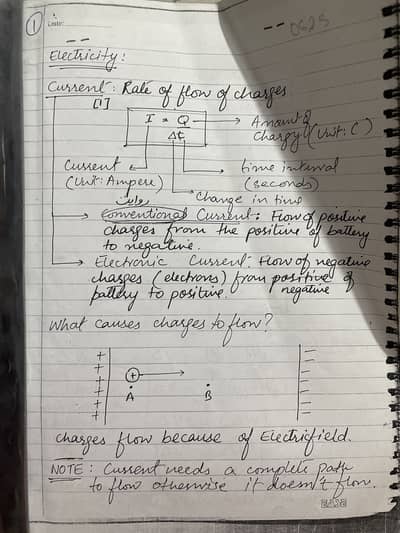 ①
Date:
0625
Electricity:
Current: Rate of flow of charges
[I]
I = Q → Amount of
Δt Charge (Unit: C)
Current time interval
(Unit: Ampere) (seconds)
Change in time
روایتی
Conventional Current: Flow of positive
charges from the positive of battery
to negative.
Electronic Current: Flow of negative
charges (electrons) from positive of
battery to positive. negative
What causes charges to flow?
+ + + + + + ⊕ → − − − − − −
A B
charges flow because of Electricfield.
NOTE: Current needs a complete path
to flow otherwise it doesn't flow.